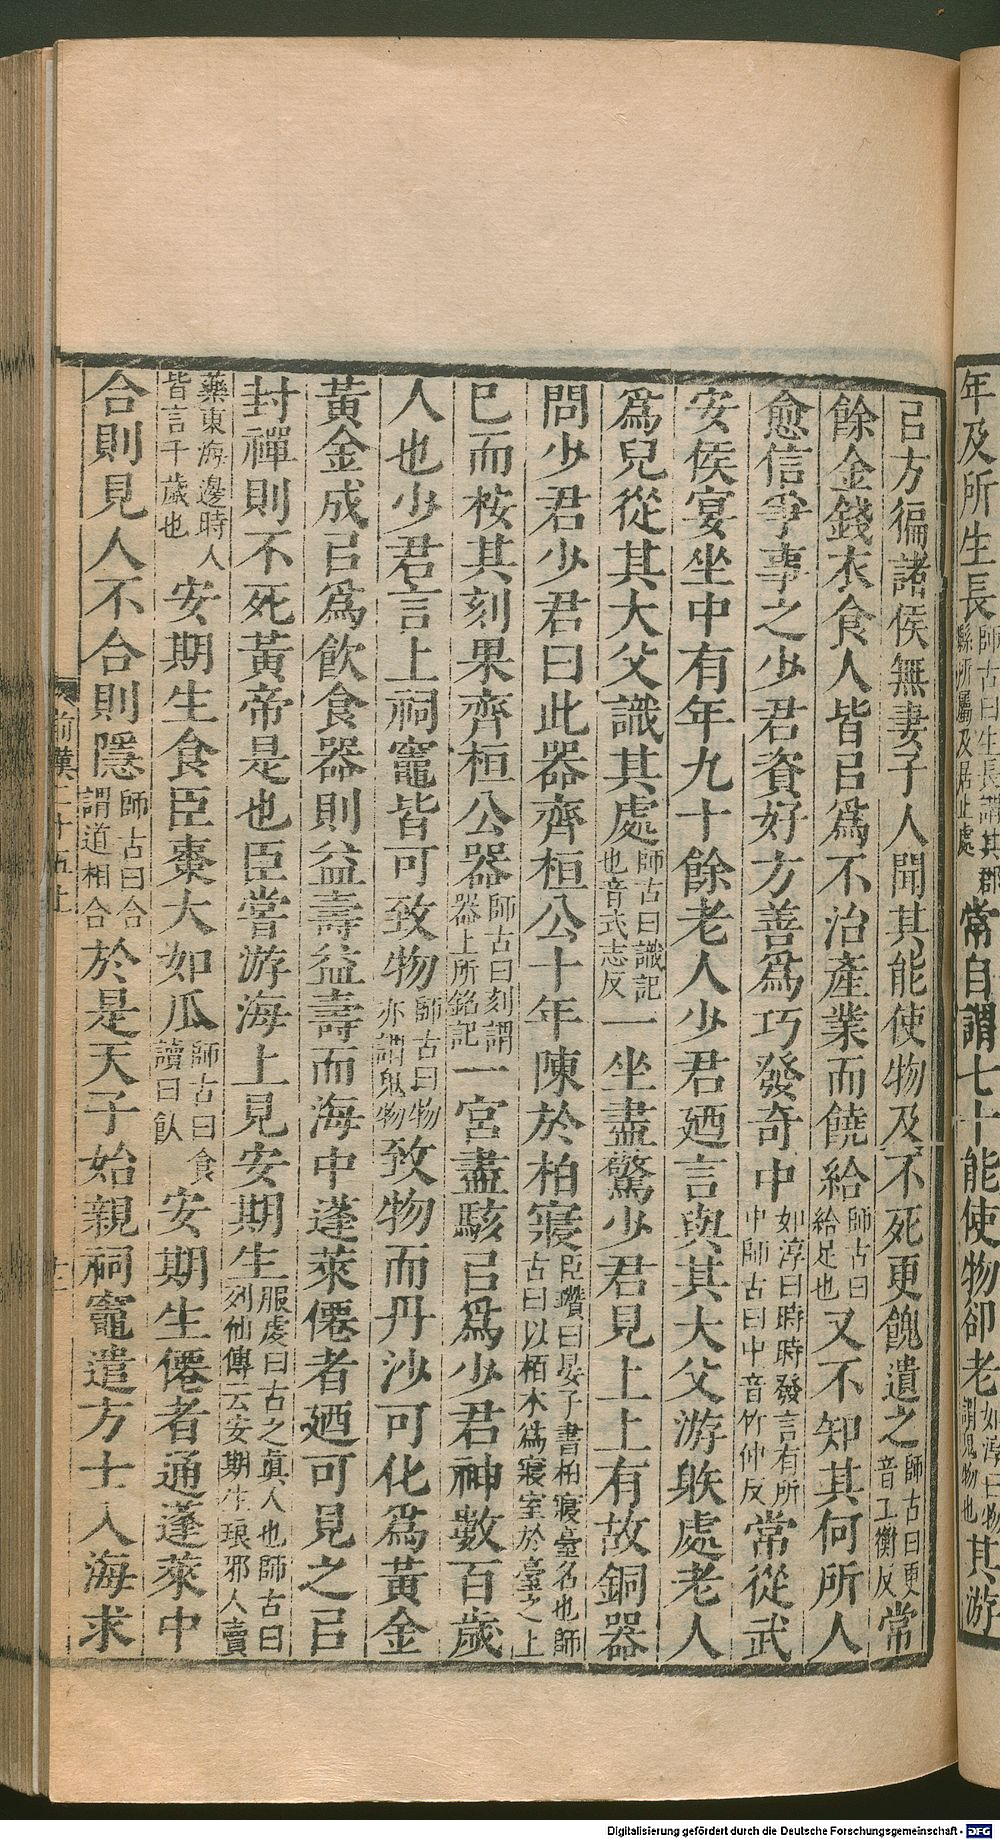 年及所生長師古曰生長謂其郡縣所屬及居止處常自謂七十能使物卻老如淳曰物謂鬼物也其游
㠯方徧諸侯無妻子人聞其能使物及不死更餽遺之師古曰更音工衡反常
餘金錢衣食人皆㠯爲不治產業而饒給師古曰給足也又不知其何所人
愈信爭事之少君資好方善爲巧發奇中如淳曰時時發言有所中師古曰中音竹仲反常從武
安侯宴坐中有年九十餘老人少君廼言與其大父游䠶處老人
爲兒從其大父識其處師古曰識記也音式志反一坐盡驚少君見上上有故銅器
問少君少君曰此器齊桓公十年陳於柏寑臣瓚曰晏子書柏寑臺名也師古曰以栢木爲寑室於臺之上
已而桉其刻果齊桓公器師古曰刻謂器上所銘記一宮盡駭㠯爲少君神數百歲
人也少君言上祠竈皆可致物師古曰物亦謂鬼物致物而丹沙可化爲黃金
黃金成㠯爲飲食器則益壽益壽而海中蓬萊僊者廼可見之㠯
封禪則不死黃帝是也臣嘗游海上見安期生服虔曰古之眞人也師古曰列仙傳云安期生琅邪人賣
藥東海邊時人皆言千歲也安期生食臣棗大如瓜師古曰食讀曰飤安期生僊者通蓬萊中
合則見人不合則隱師古曰合謂道相合於是天子始親祠竈遣方士入海求
前漢二十五上
十二
Digitalisierung gefördert durch die Deutsche Forschungsgemeinschaft - DFG